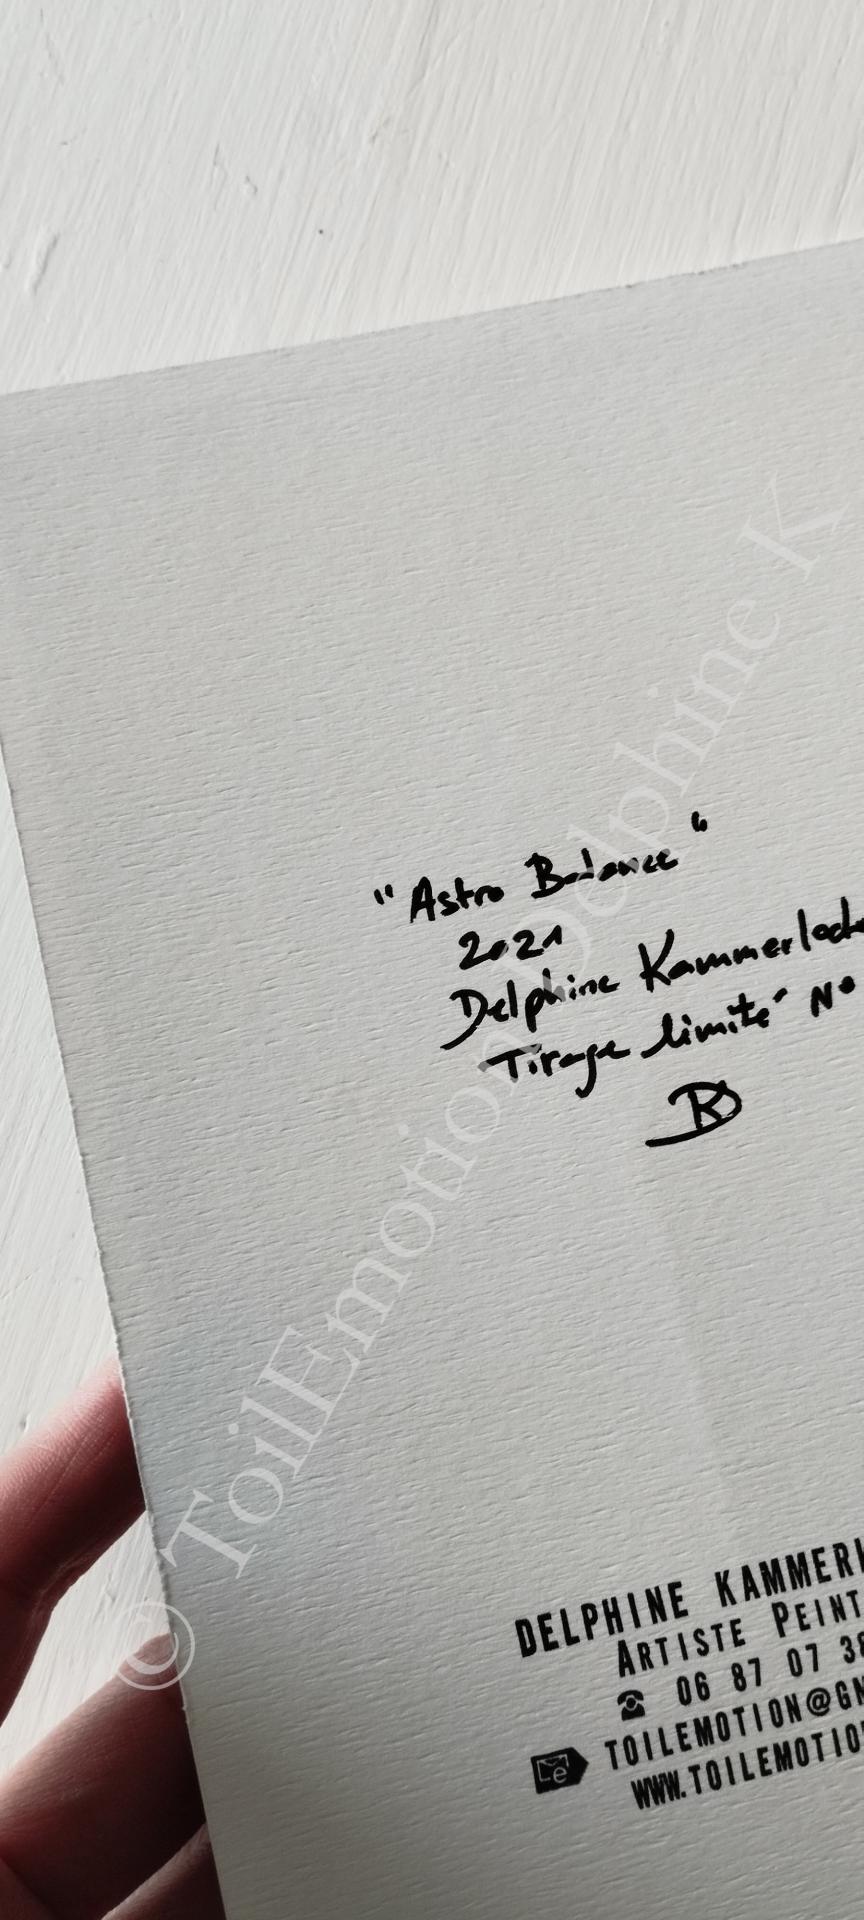 "Astro Balance"
2021
Delphine Kammerlock
Tirage limité N°
DK
DELPHINE KAMMERL
ARTISTE PEINT
06 87 07 38
TOILEMOTION@GM
WWW.TOILEMOTIO
© ToilEmotion Delphine K